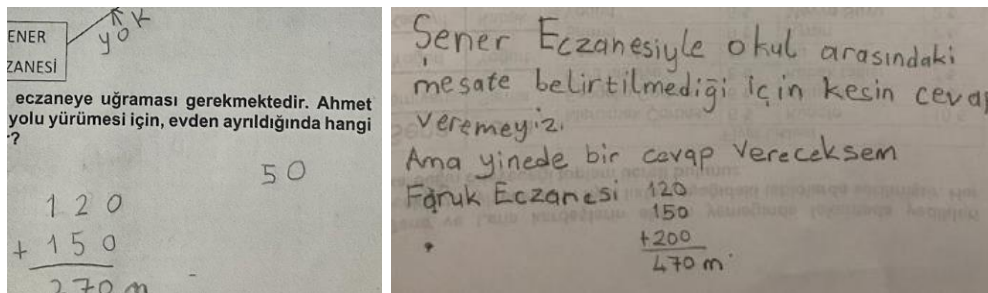 ENER
ZANESİ
yOK
eczaneye uğraması gerekmektedir. Ahmet
yolu yürümesi için, evden ayrıldığında hangi
?
50
120
+ 150
270 m
Şener Eczanesiyle okul arasındaki
mesate belirtilmediği için kesin cevap
veremeyiz.
Ama yinede bir cavap Vereceksem
Faruk Eczanesi 120
150
+200
470 m